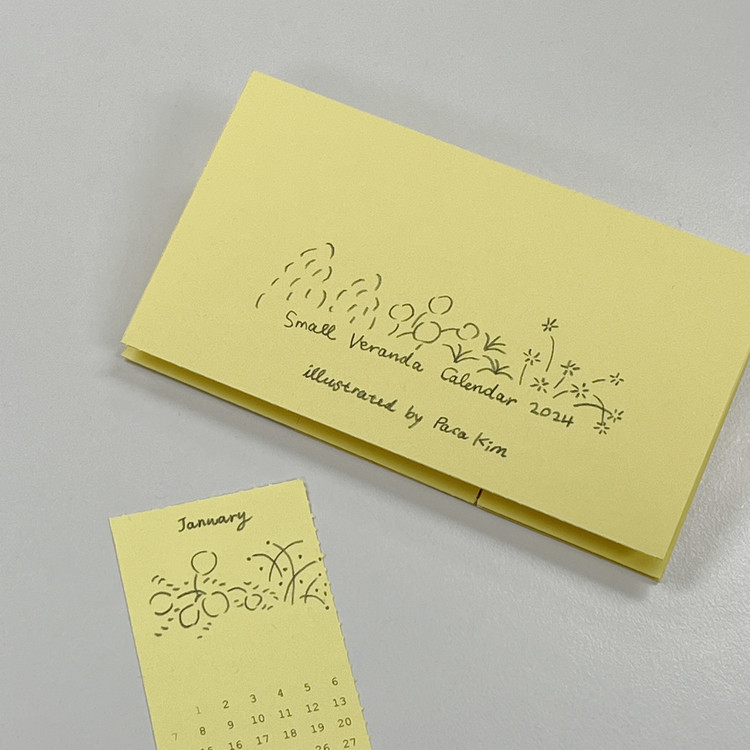 Small Veranda Calendar 2024
illustrated by Para Kim
January
1 2 3 4 5 6
7 8 9 10 11 12 13
15 16 17 18 19 20
26 27